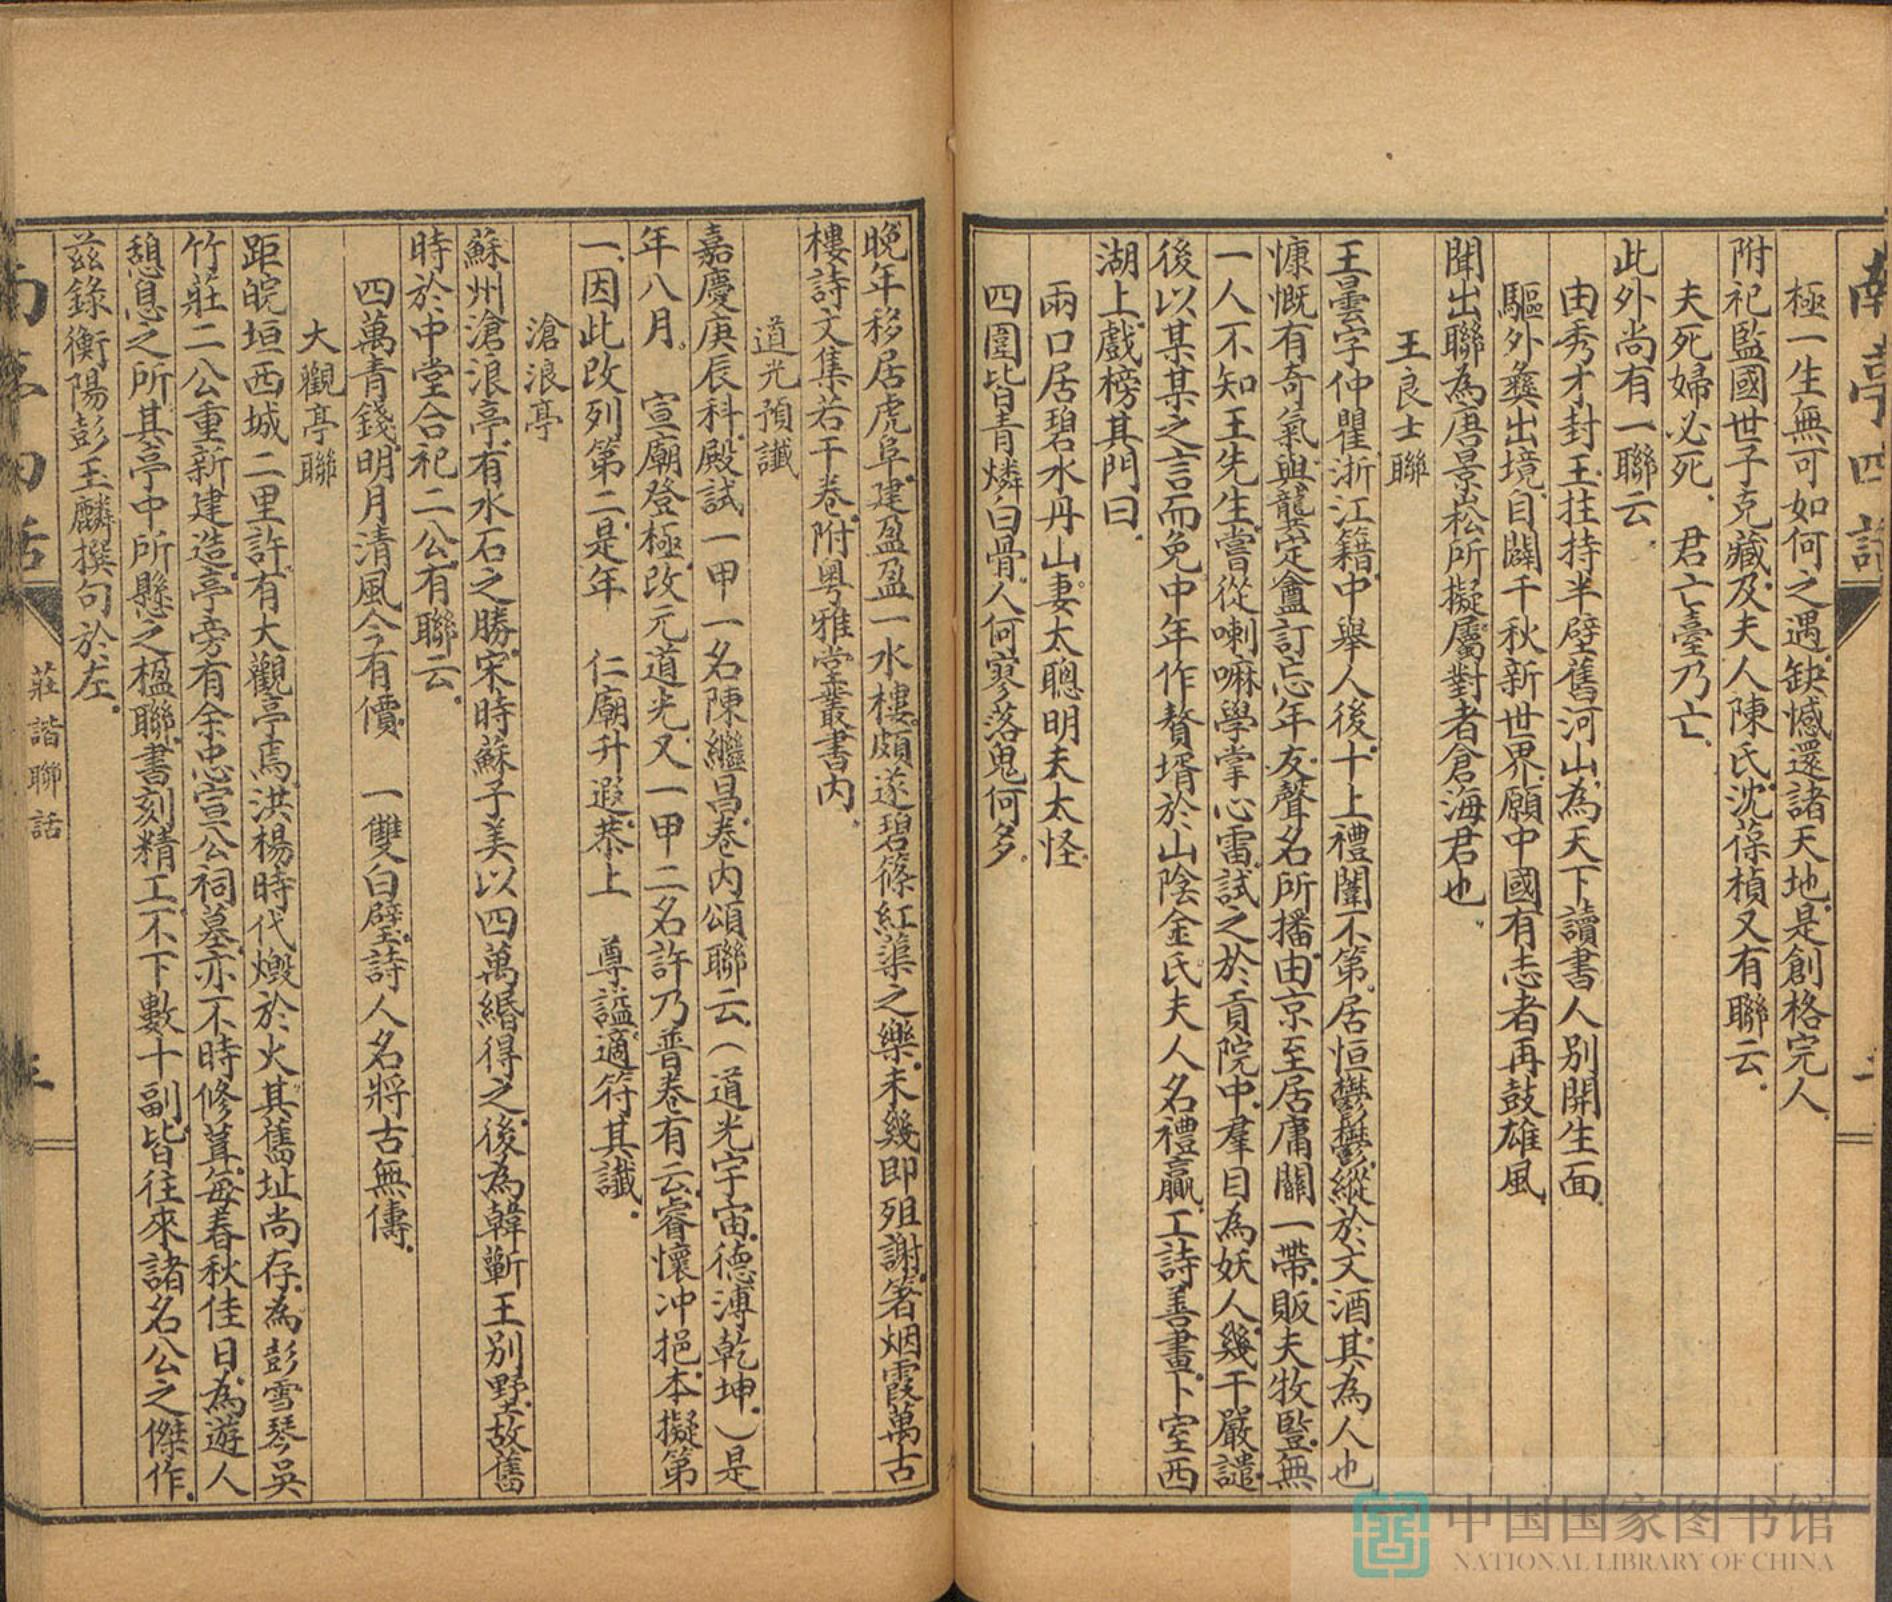 南亭四話
極一生無可如何之遇缺憾還諸天地是創格完人
附祀監國世子克臧及夫人陳氏沈葆楨又有聯云
夫死婦必死 君亡臺乃亡
此外尚有一聯云
由秀才封王拄持半壁舊河山為天下讀書人別開生面
驅外彝出境自闢千秋新世界願中國有志者再鼓雄風
聞出聯為唐景崧所擬屬對者倉海君也
王良士聯
王曇字仲瞿浙江籍中舉人後十上禮闈不第居恒鬱鬱縱於文酒其為人也
慷慨有奇氣與龔定盦訂忘年友聲名所播由京至居庸關一帶販夫牧豎無
一人不知王先生嘗從喇嘛學掌心雷試之於貢院中羣目為妖人幾干嚴譴
後以某某之言而免中年作贅壻於山陰金氏夫人名禮嬴工詩善畫卜室西
湖上戲榜其門曰
兩口居碧水丹山妻太聰明夫太怪
四圍皆青燐白骨人何寥落鬼何多
晚年移居虎阜建盈盈一水樓頗遂碧篠紅蕖之樂未幾即殂謝箸烟霞萬古
樓詩文集若干卷附粤雅堂叢書內
道光預讖
嘉慶庚辰科殿試一甲一名陳繼昌卷內頌聯云（道光宇宙德溥乾坤）是
年八月 宣廟登極改元道光又一甲二名許乃普卷有云睿懷冲挹本擬第
一因此改列第二是年 仁廟升遐恭上 尊謚適符其讖
滄浪亭
蘇州滄浪亭有水石之勝宋時蘇子美以四萬緡得之後為韓蘄王別墅故舊
時於中堂合祀二公有聯云
四萬青錢明月清風今有價 一雙白璧詩人名將古無儔
大觀亭聯
距皖垣西城二里許有大觀亭焉洪楊時代燬於火其舊址尚存為彭雪琴吳
竹莊二公重新建造亭旁有余忠宣公祠墓亦不時修葺每春秋佳日為遊人
憩息之所其亭中所懸之楹聯書刻精工不下數十副皆往來諸名公之傑作
茲錄衡陽彭玉麟撰句於左
莊諧聯話
中国国家图书馆
NATIONAL LIBRARY OF CHINA